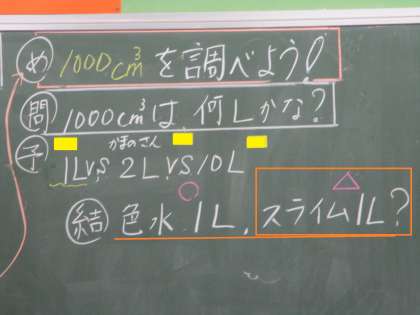 め 1000cm³を調べよう!
問 1000cm³は、何Lかな?
かまのさん
予 1L vs 2L vs 10L
結 色水 1L, スライム1L?